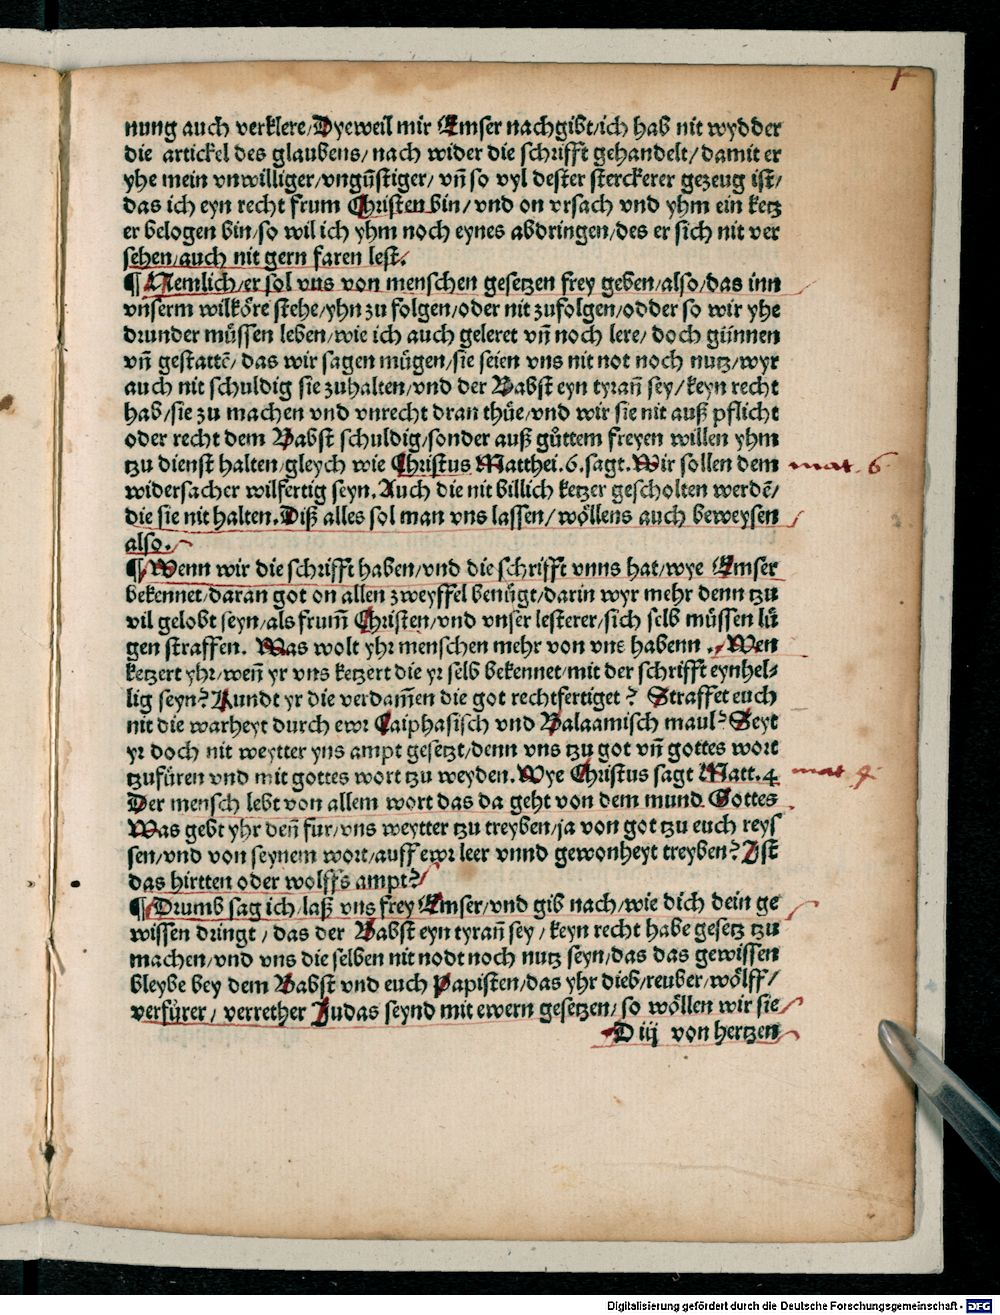 nung auch verklere/Dyeweil mir Emser nachgibt/ich hab nit wydder
die artickel des glaubens/nach wider die schrifft gehandelt/damit er
yhe mein vnwilliger/vngũstiger/vñ so vyl dester sterckerer gezeug ist/
das ich eyn recht frum Christen bin/vnd on vrsach vnd yhm ein ketz
er belogen bin/so wil ich yhm noch eynes abdringen/des er sich nit ver
sehen/auch nit gern faren lest.
¶ Nemlich/er sol vns von menschen gesetzen frey geben/also/das inn
vnserm wilkôre stehe/yhn zu folgen/oder nit zufolgen/odder so wir yhe
drunder müssen leben/wie ich auch geleret vñ noch lere/doch günnen
vñ gestattẽ/das wir sagen mügen/sie seien vns nit not noch nutz/wyr
auch nit schuldig sie zuhalten/vnd der Babst eyn tyrañ sey/keyn recht
hab/sie zu machen vnd vnrecht dran thüe/vnd wir sie nit auß pflicht
oder recht dem Babst schuldig/sonder auß gůttem freyen willen yhm
tzu dienst halten/gleych wie Christus Matthei.6.sagt.Wir sollen dem
mat. 6
widersacher wilfertig seyn.Auch die nit billich ketzer gescholten werdẽ/
die sie nit halten.Diß alles sol man vns lassen/wôllens auch beweysen
also.
¶ Wenn wir die schrifft haben/vnd die schrifft vnns hat/wye Emser
bekennet/daran got on allen zweyffel benügt/darin wyr mehr denn tzu
vil gelobt seyn/als frum̃ Christen/vnd vnser lesterer/sich selb müssen lü
gen straffen. Was wolt yhr menschen mehr von vns habenn. Wen
ketzert yhr/weñ yr vns ketzert die yr selb bekennet/mit der schrifft eynhel-
lig seyn? Kundt yr die verdam̃en die got rechtfertiget? Straffet euch
nit die warheyt durch ewr Caiphasisch vnd Balaamisch maul? Seyt
yr doch nit weytter yns ampt gesetzt/denn vns tzu got vñ gottes wort
tzufüren vnd mit gottes wort tzu weyden. Wye Christus sagt Matt.4
mat 4
Der mensch lebt von allem wort das da geht von dem mund Gottes
Was gebt yhr deñ fur/vns weytter tzu treyben/ja von got tzu euch reys
sen/vnd von seynem wort/auff ewr leer vnnd gewonheyt treyben? Ist
das hirtten oder wolffs ampt?
¶ Drumb sag ich/laß vns frey Emser/vnd gib nach/wie dich dein ge
wissen dringt/das der Babst eyn tyrañ sey/keyn recht habe gesetz tzu
machen/vnd vns die selben nit nodt noch nutz seyn/das das gewissen
bleybe bey dem Babst vnd euch Papisten/das yhr dieb/reuber/wôlff/
verfůrer/ verrether Judas seynd mit ewern gesetzen/so wôllen wir sie
D iij von hertzen
Digitalisierung gefördert durch die Deutsche Forschungsgemeinschaft - DFG